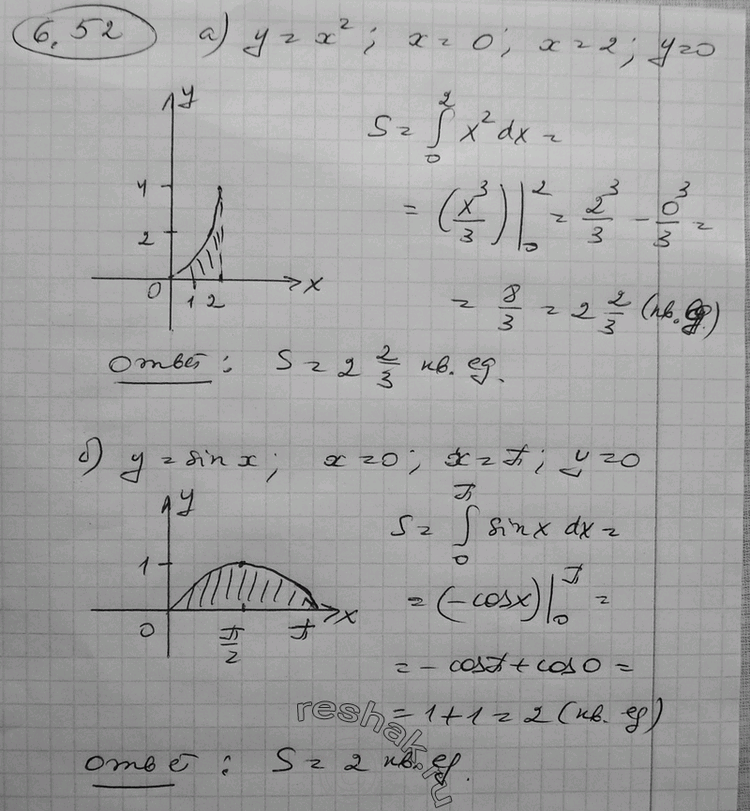 6.52 а) y = x²; x = 0; x = 2; y = 0
y
4
2
0 1 2 x
S = ∫₀² x² dx =
= (x³/3)|₀² = 2³/3 - 0³/3 =
= 8/3 = 2 2/3 (кв. ед.)
Ответ: S = 2 2/3 кв. ед.
б) y = sin x; x = 0; x = π; y = 0
y
1
0 π/2 π x
S = ∫₀^π sin x dx =
= (-cos x)|₀^π =
= -cos π + cos 0 =
= 1 + 1 = 2 (кв. ед)
Ответ: S = 2 кв. ед.
reshak.ru